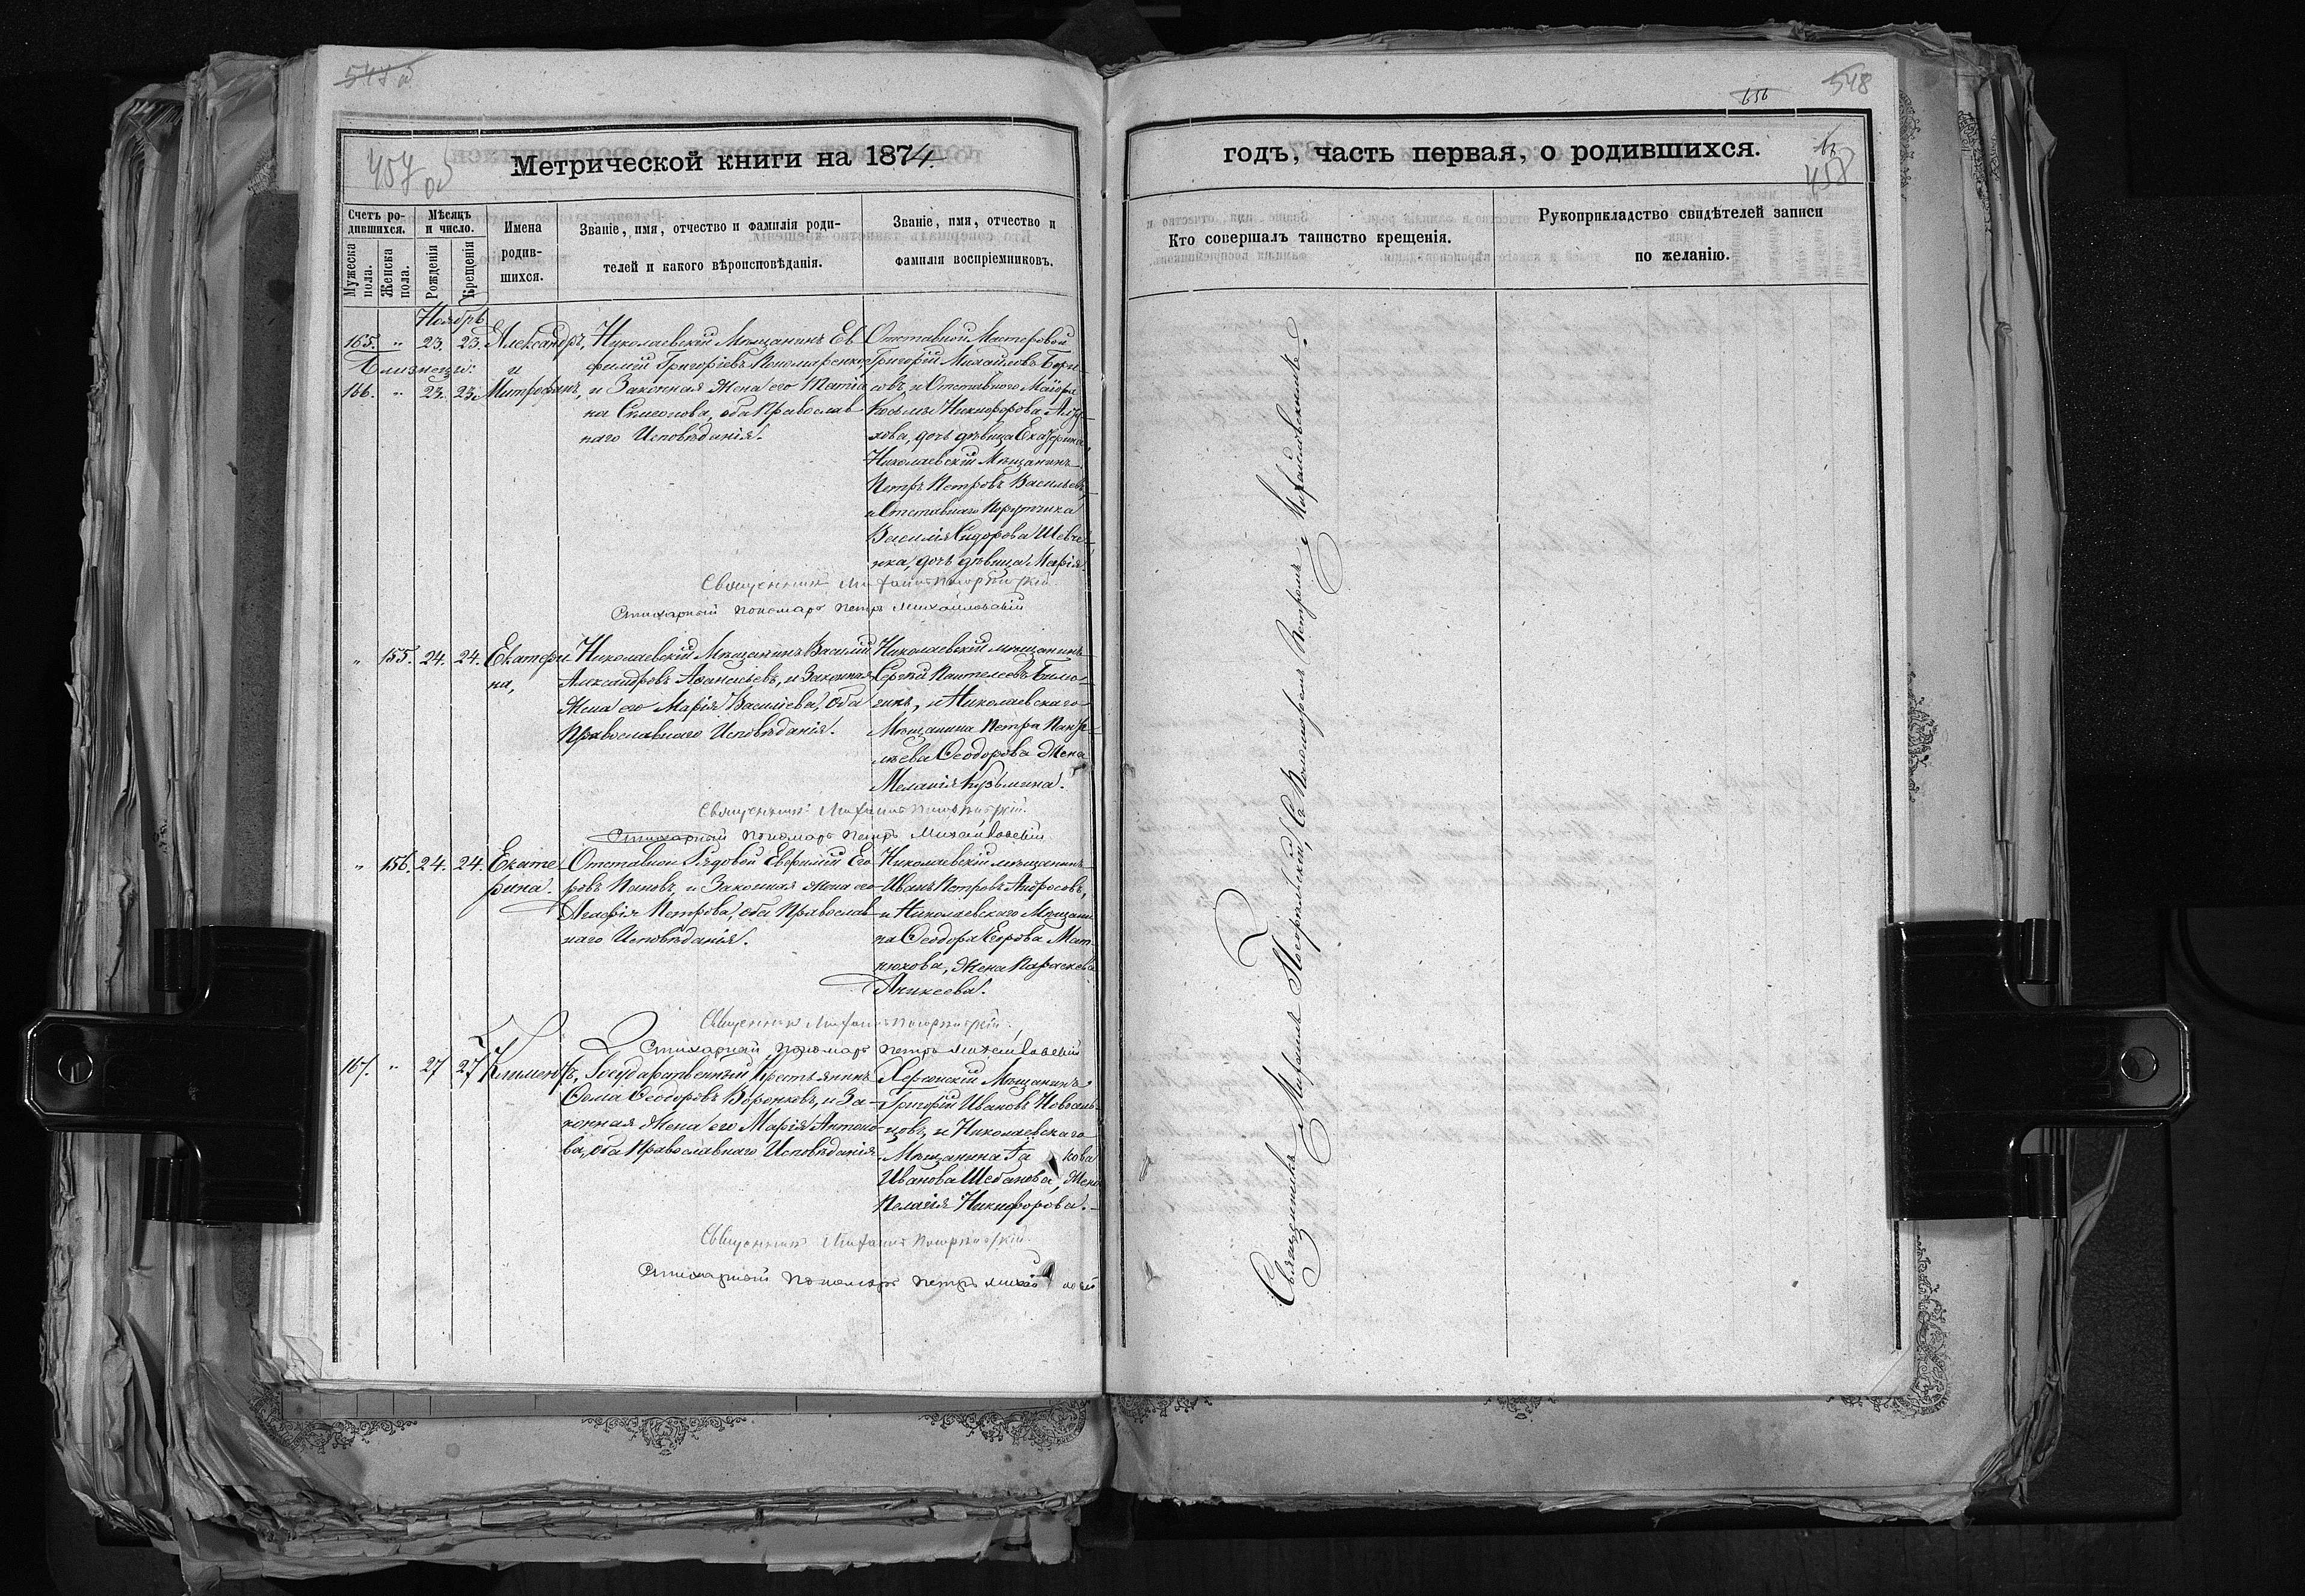 547 об
457 об
Метрической книги на 1874
Счетъ ро-
дившихся.
Мужеска пола.
Женска пола.
Мѣсяцъ
и число.
Рожденія
Крещенія
Имена
родив-
шихся.
Званіе, имя, отчество и фамилія роди-
телей и какого вѣроисповѣданія.
Званіе, имя, отчество и
фамилія воспріемниковъ.
Ноябрь
165. " 23. 23. Александръ,
Близнецы: и
166. " 23. 23. Митрофанъ,
Николаевскій Мѣщанинъ Ев
фимій Григоріевъ Пономаренко,
и Законная Жена его Татіа
на Симеонова, оба Православ
наго Исповѣданія.
Отставной Мастеровой
Григорій Михайловъ Бори
совъ, и Отставного Маіора
Косьмы Никифорова
дочь дѣвица Екатерина,
Николаевскій Мѣщанинъ
Петръ Петровъ Васильевъ,
и Отставнаго Порутчика
Василія Сидорова Шевче-
нка, дочь дѣвица Марія.
Священникъ Михаилъ Погорѣльскій
Стихарный пономарь Петръ Михайловскій
" 155. 24. 24. Екатери
на,
Николаевскій Мѣщанинъ Василій
Александровъ Аѳанасьевъ, и Законная
Жена его Марія Васильева, оба
Православнаго Исповѣданія.
Николаевскій мѣщанинъ
Сергѣй Пантелеевъ
и Николаевскаго
Мѣщанина Петра Пантел-
ѣева Ѳеодорова Жена
Меланія Кузьмина.
Священникъ Михаилъ Погорѣльскій
Стихарный пономарь Петръ Михайловскій
" 156. 24. 24. Екате
рина.
Отставной Рядовой Евфимій Его
ровъ Пановъ, и Законная Жена его
Агафія Петрова, оба Православ
наго Исповѣданія.
Николаевскій мѣщанинъ
Иванъ Петровъ Андросовъ,
и Николаевскаго Мѣщани
на Ѳеодора Егорова Мат-
нюхова, Жена Параскева
Аникеева.
Священникъ Михаилъ Погорѣльскій
Стихарный пономарь Петръ Михайловскій
167. " 27 27 Климентъ,
Государственный Крестьянинъ
Ѳома Ѳеодоровъ Воронковъ, и За-
конная Жена его Марія Антоно
ва, оба Православнаго Исповѣданія
Херсонскій Мѣщанинъ
Григорій Ивановъ
и Николаевскаго
Мѣщанина
Иванова Шебанова, Жена
Пелагія Никифорова.
Священникъ Михаилъ Погорѣльскій
Стихарный пономарь Петръ
656
548
458
годъ, часть первая, о родившихся.
Кто совершалъ таинство крещенія.
Рукоприкладство свидѣтелей записи
по желанію.
Священникъ Михаилъ Погорѣльскій, съ Пономаремъ Петромъ Михайловскимъ.